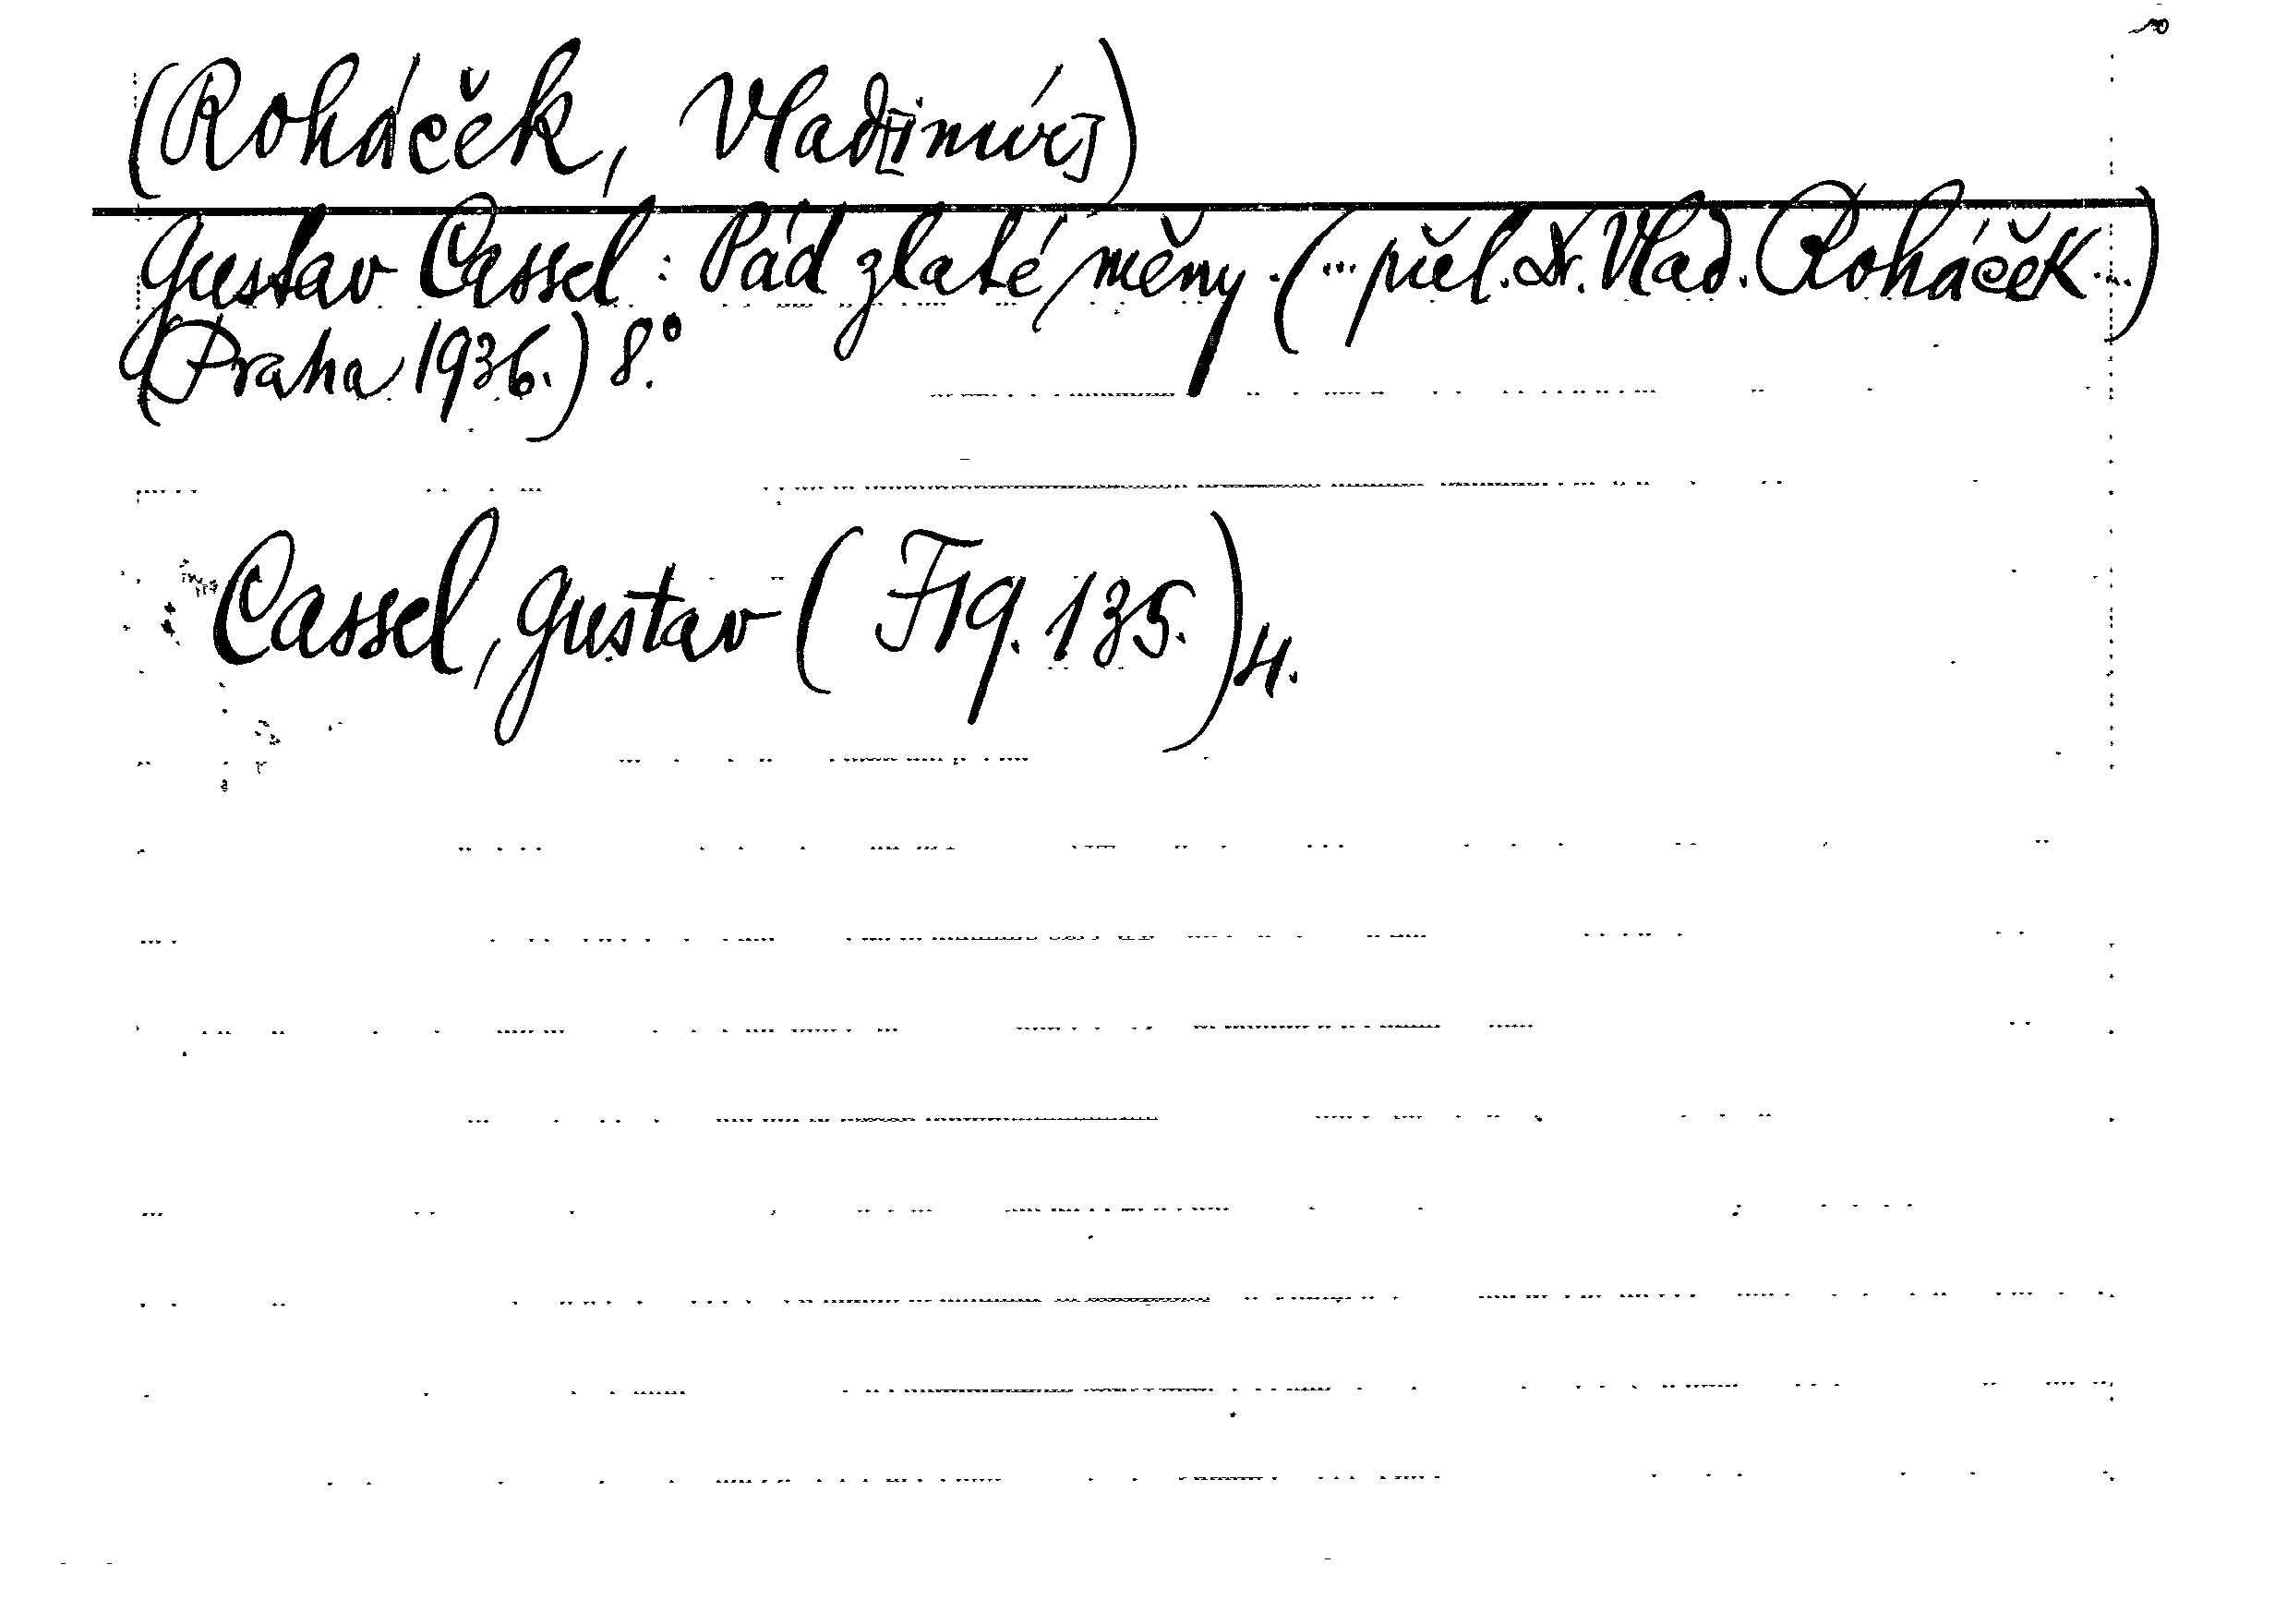 (Roháček, Vlad[imír])
Gustav Cassel: Pád zlaté měny. (...přel. Dr. Vlad. Roháček...)
(Praha 1936.) 8.°
Cassel, Gustav (F19.135.) 4.